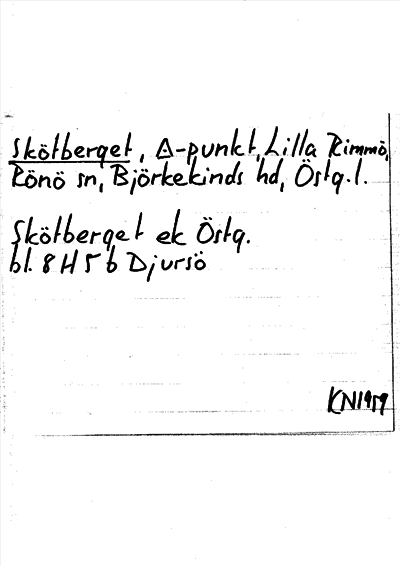 Skötberget, Δ-punkt, Lilla Rimmö,
Rönö sn, Björkekinds hd, Östg.l.
Skötberget ek Östg.
bl. 8 H 5 b Djursö
KN1959